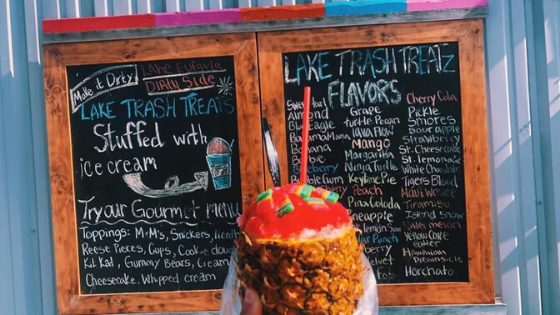 Make it Dirty
Lake Eufaula
DIRTY Side
LAKE TRASH TREATS
Stuffed with
ice cream
Try our Gourmet menu
Toppings: M&M's, Snickers,
Reese Pieces, Cups, Cookie dough
Kit Kat, Gummy Bears,
Cheesecake. Whipped cream
LAKE TRASH TREATZ
FLAVORS
Almond
Blue Eagle
Bahama Mama
Banana
Grape
Turtle Pecan
LAVA FLOW
Mango
Margarita
Ninja Turtle
Key Lime Pie
Peach
Pina Colada
Pineapple
Punch
Cherry Cola
Pickle
Smores
Sour apple
Strawberry
St. Cheesecake
St. lemonade
White Chocolate
Tigers Blood
Maui Wowie
Tiramisu
Island Snow
Yellow Cake
Batter
Hawaiian
Horchato